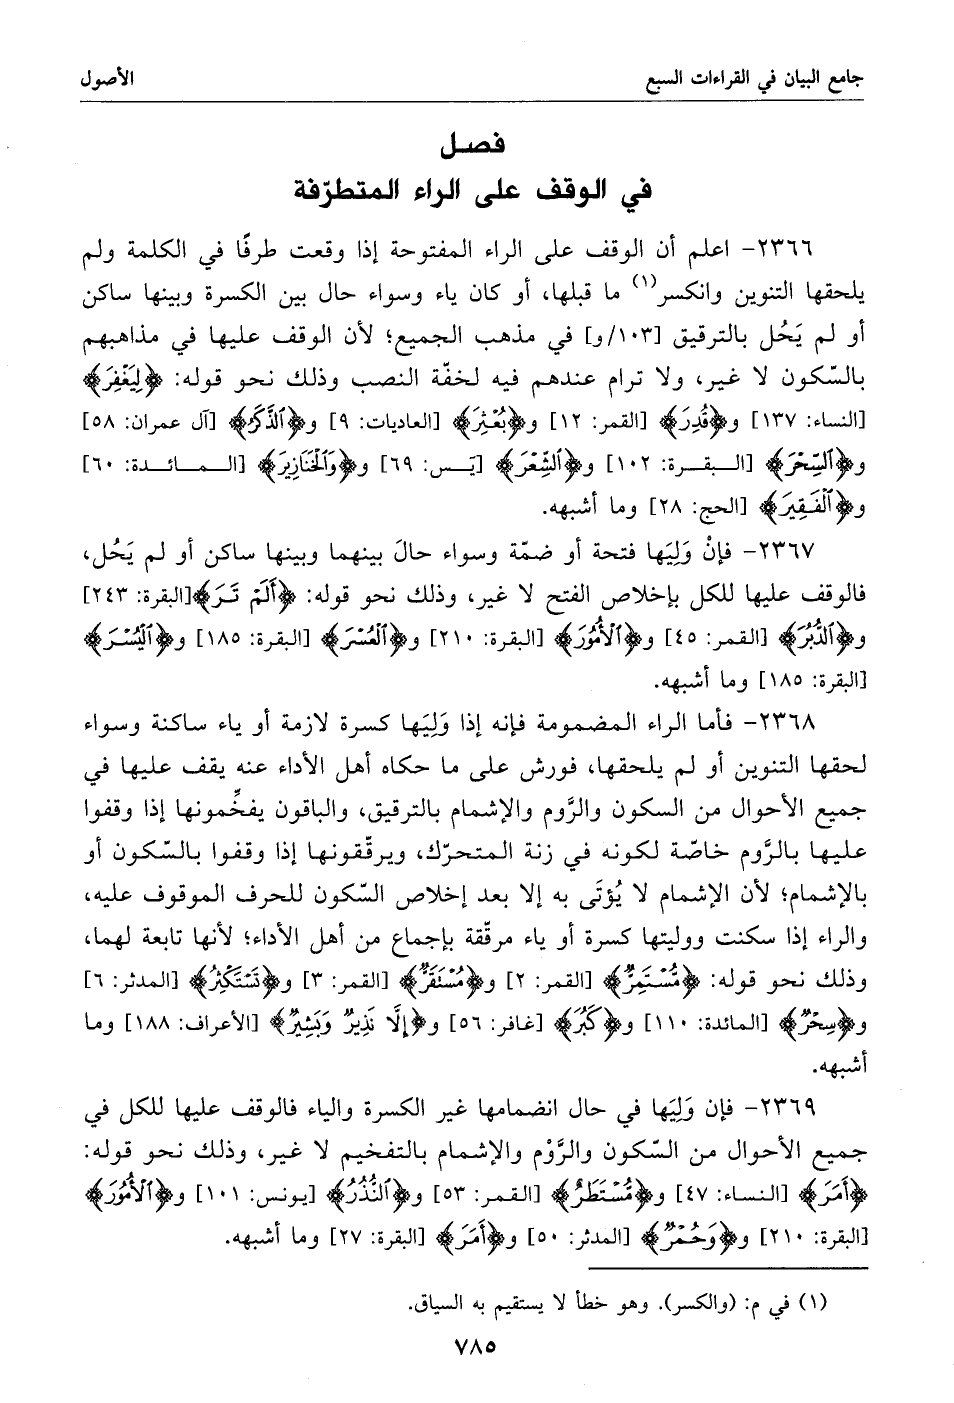 جامع البيان في القراءات السبع الأصول
فصل
في الوقف على الراء المتطرّفة
٢٣٦٦- اعلم أن الوقف على الراء المفتوحة إذا وقعت طرفًا في الكلمة ولم
يلحقها التنوين وانكسر(١) ما قبلها، أو كان ياء وسواء حال بين الكسرة وبينها ساكن
أو لم يَحُل بالترقيق [١٠٣/و] في مذهب الجميع؛ لأن الوقف عليها في مذاهبهم
بالسّكون لا غير، ولا ترام عندهم فيه لخفّة النصب وذلك نحو قوله: ﴿لِيَغْفِرَ﴾
[النساء: ١٣٧] و﴿قُدِرَ﴾ [القمر: ١٢] و﴿بُعْثِرَ﴾ [العاديات: ٩] و﴿ٱلذِّكْرُ﴾ [آل عمران: ٥٨]
و﴿ٱلسِّحْرَ﴾ [البقرة: ١٠٢] و﴿ٱلشِّعْرَ﴾ [يَس: ٦٩] و﴿وَٱلْخَنَازِيرَ﴾ [المائدة: ٦٠]
و﴿ٱلْفَقِيرَ﴾ [الحج: ٢٨] وما أشبهه.
٢٣٦٧- فإنْ وَلِيَها فتحة أو ضمّة وسواء حالَ بينهما وبينها ساكن أو لم يَحُل،
فالوقف عليها للكل بإخلاص الفتح لا غير، وذلك نحو قوله: ﴿أَلَمْ تَرَ﴾[البقرة: ٢٤٣]
و﴿ٱلدُّبُرَ﴾ [القمر: ٤٥] و﴿ٱلْأُمُورَ﴾ [البقرة: ٢١٠] و﴿ٱلْعُسْرَ﴾ [البقرة: ١٨٥] و﴿ٱلْيُسْرَ﴾
[البقرة: ١٨٥] وما أشبهه.
٢٣٦٨- فأما الراء المضمومة فإنه إذا وَلِيَها كسرة لازمة أو ياء ساكنة وسواء
لحقها التنوين أو لم يلحقها، فورش على ما حكاه أهل الأداء عنه يقف عليها في
جميع الأحوال من السكون والرَّوم والإشمام بالترقيق، والباقون يفخِّمونها إذا وقفوا
عليها بالرَّوم خاصّة لكونه في زنة المتحرّك، ويرقّقونها إذا وقفوا بالسّكون أو
بالإشمام؛ لأن الإشمام لا يُؤتَى به إلا بعد إخلاص السّكون للحرف الموقوف عليه،
والراء إذا سكنت ووليتها كسرة أو ياء مرقّقة بإجماع من أهل الأداء؛ لأنها تابعة لهما،
وذلك نحو قوله: ﴿مُّسْتَمِرٌّ﴾ [القمر: ٢] و﴿مُسْتَقَرٌّ﴾ [القمر: ٣] و﴿تَسْتَكْثِرُ﴾ [المدثر: ٦]
و﴿سِحْرٌ﴾ [المائدة: ١١٠] و﴿كِبْرٌ﴾ [غافر: ٥٦] و﴿إِلَّا نَذِيرٌ وَبَشِيرٌ﴾ [الأعراف: ١٨٨] وما
أشبهه.
٢٣٦٩- فإن وَلِيَها في حال انضمامها غير الكسرة والياء فالوقف عليها للكل في
جميع الأحوال من السّكون والرَّوْم والإشمام بالتفخيم لا غير، وذلك نحو قوله:
﴿أَمَرَ﴾ [النساء: ٤٧] و﴿مُّسْتَطَرٌ﴾ [القمر: ٥٣] و﴿ٱلنُّذُرُ﴾ [يونس: ١٠١] و﴿ٱلْأُمُورَ﴾
[البقرة: ٢١٠] و﴿وَحُمُرٌ﴾ [المدثر: ٥٠] و﴿أَمَرَ﴾ [البقرة: ٢٧] وما أشبهه.
(١) في م: (والكسر). وهو خطأ لا يستقيم به السياق.
٧٨٥